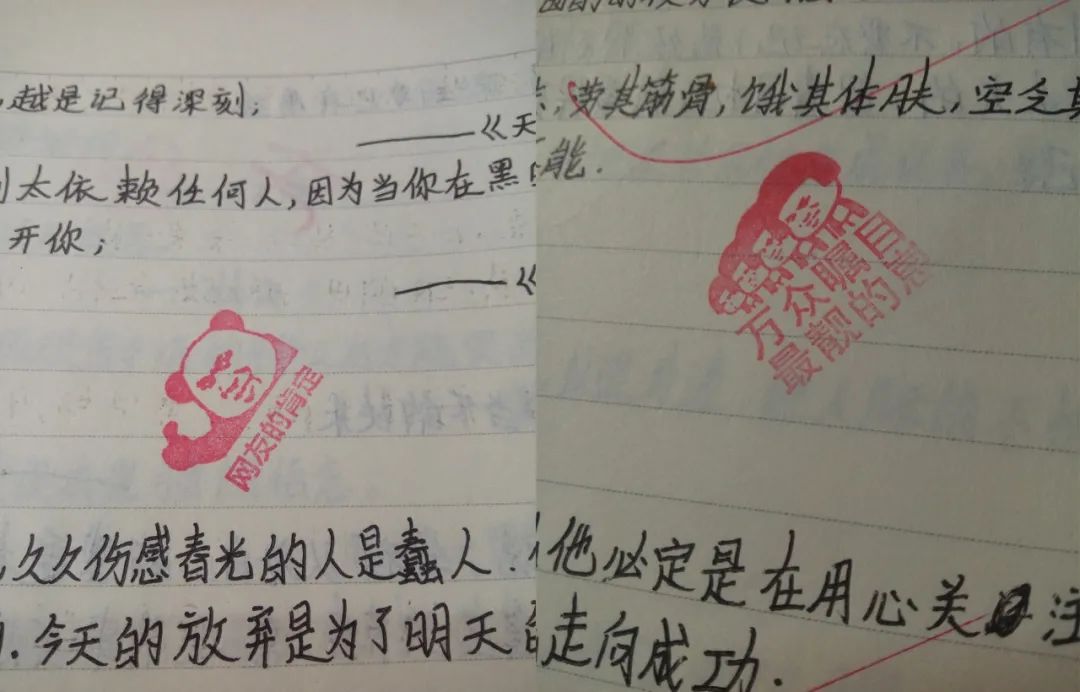 越是记得深刻；
——《天
太依赖任何人，因为当你在黑
开你；
——《
网友的肯定
久久伤感春光的人是蠢人．
．今天的放弃是为了明天
，劳其筋骨，饿其体肤，空乏其
能．
万众瞩目
最靓的
他必定是在用心关注
走向成功．